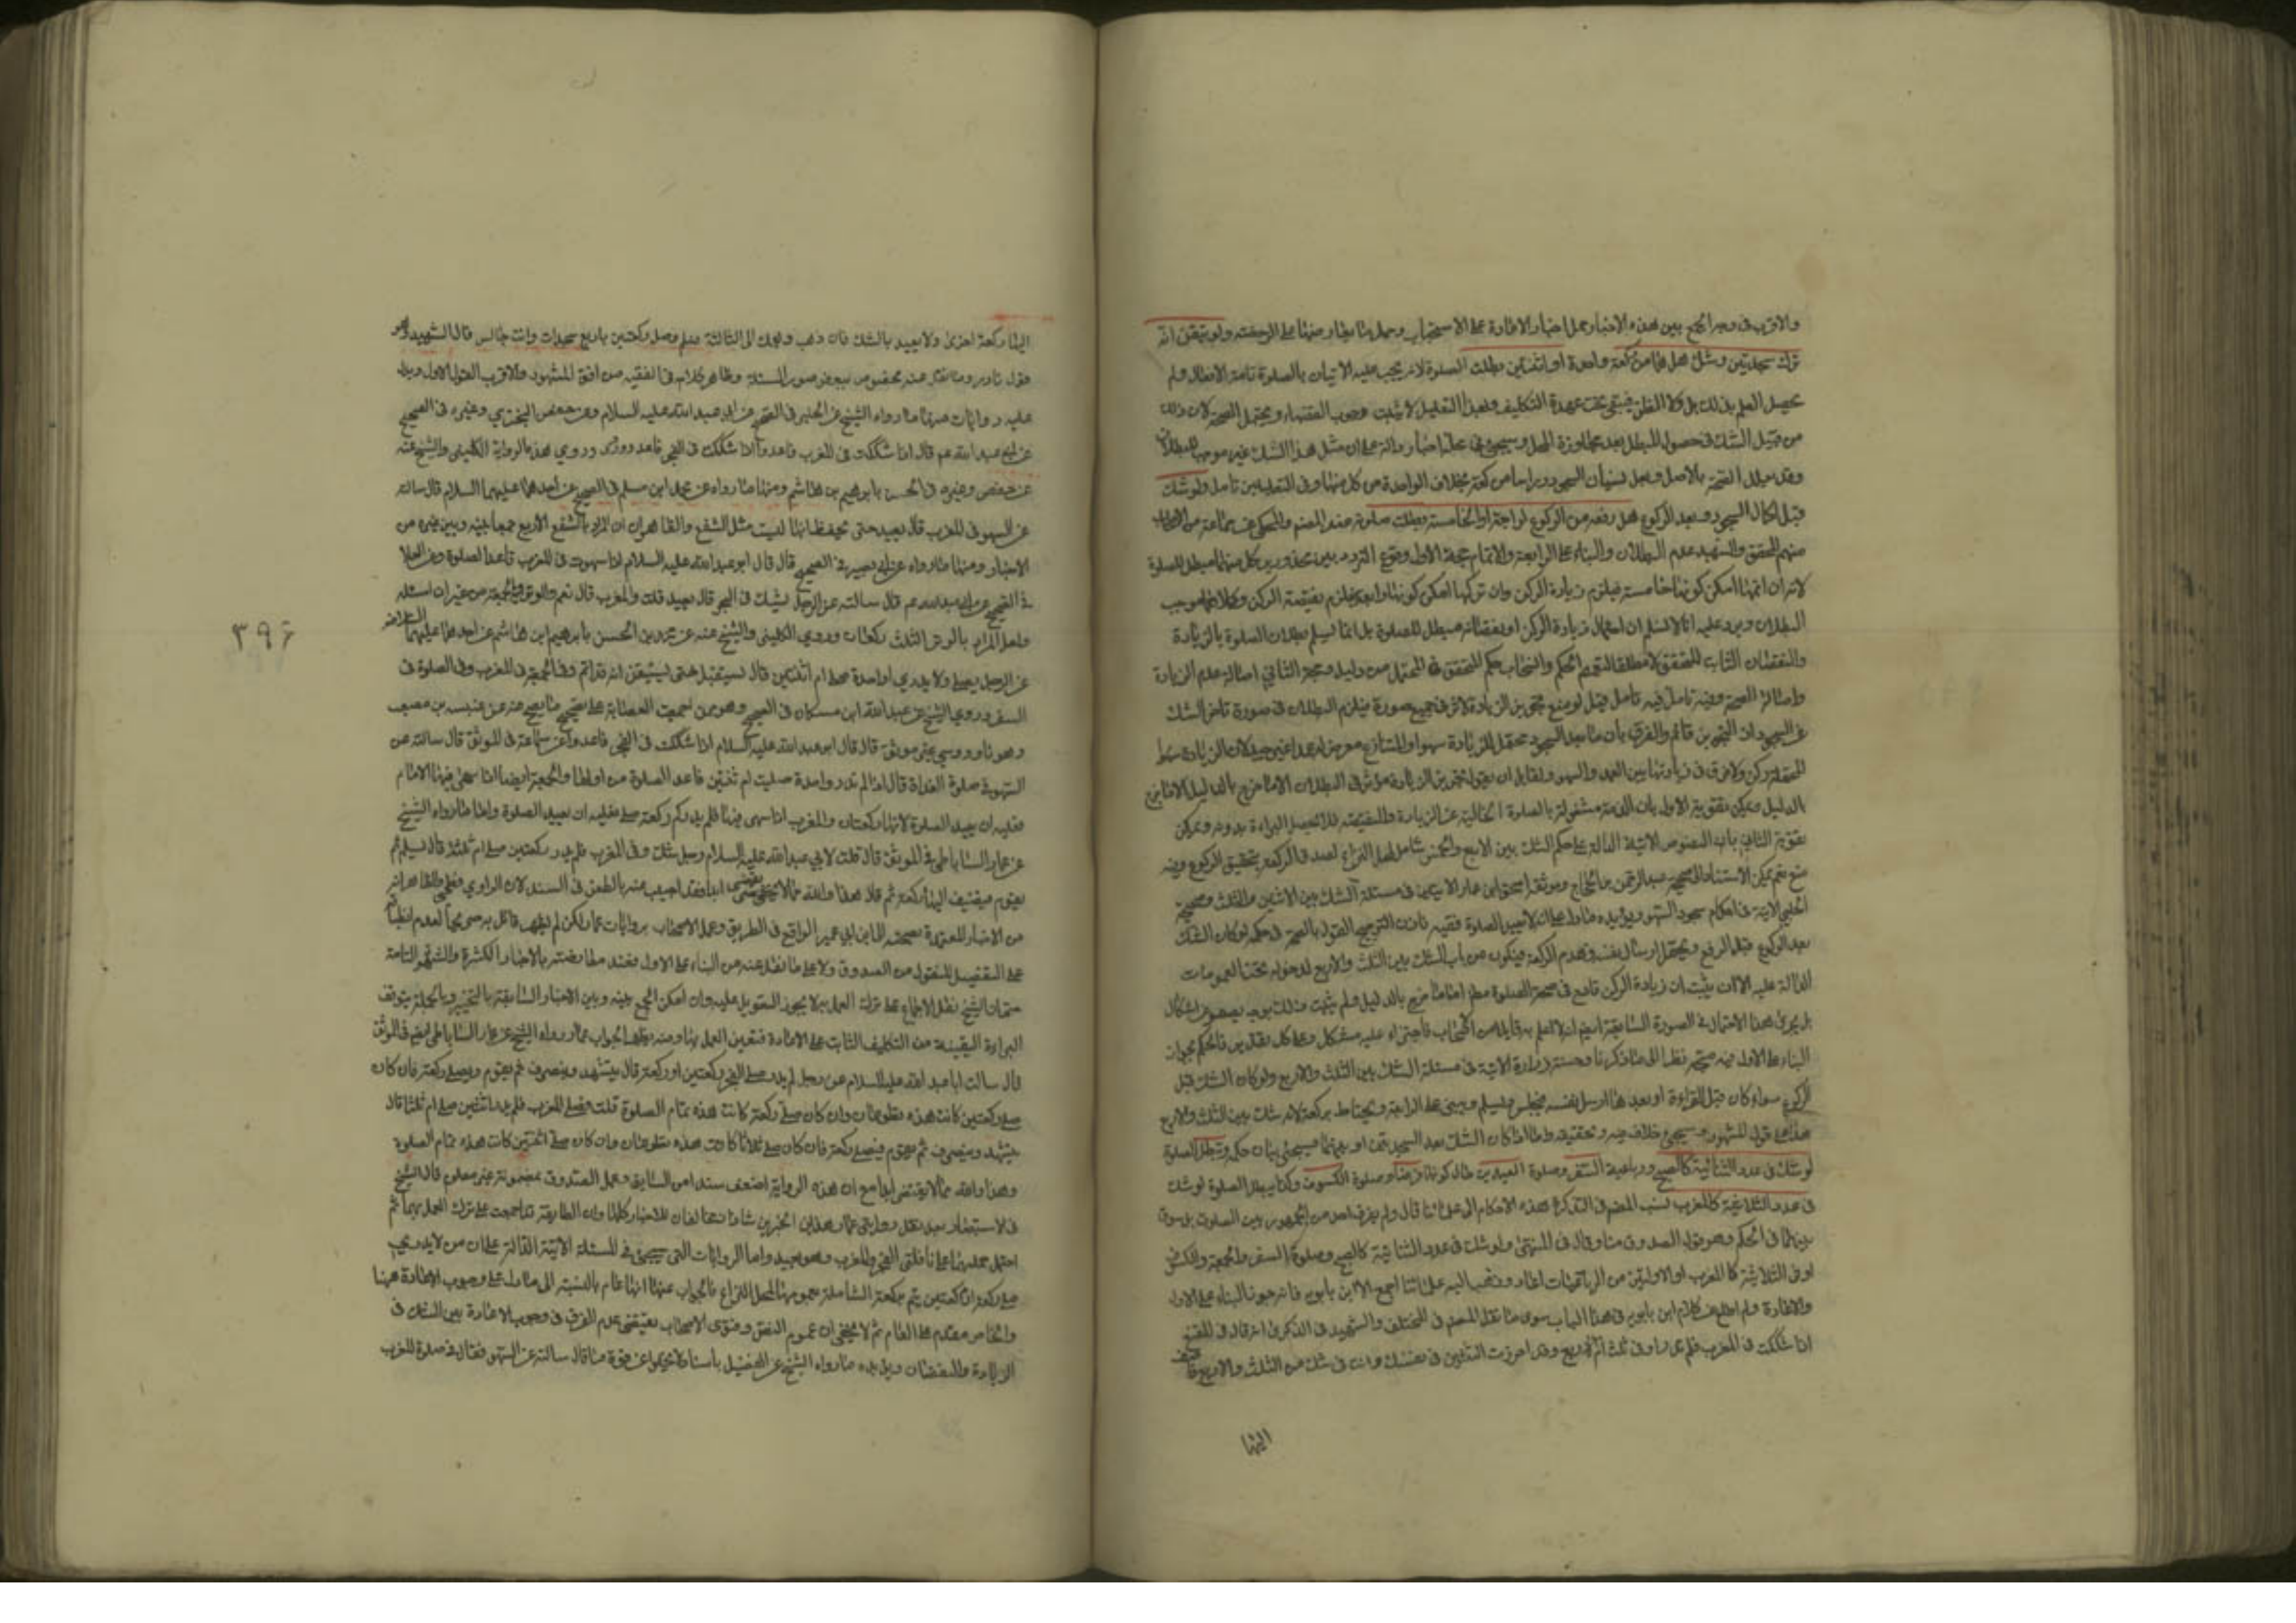 والاقرب في وجه الجمع بين هذه الاخبار حمل اخبار الاعادة على الاستحباب وحمل ما يغاير منها على الرخصة ولو تيقن انه
ترك سجدتين وشك هل هما من ركعة واحدة او اثنتين بطلت الصلوة لانه يجب عليه الاتيان بالصلوة تامة الافعال ولم
يحصل العلم بذلك بل ولا الظن فيبقى تحت عهدة التكليف وبهذا التعليل لا يثبت وجوب القضاء ويحتمل الصحة لان ذلك
من قبيل الشك في حصول المبطل بعد تجاوزه المحل وسيجيء في محله اخبار دالة على ان مثل هذا الشك غير موجب للبطلان
وقد يعلل الصحة بالاصل وبجعل نسيان السجود وراسا من ركعة بخلاف الواحدة من كل منها وفي التعليلين تامل ولو شك
قبل اكمال السجود وبعد الركوع هل رفعه من الركوع لرابعة او لخامسة بطلت صلوته عند المصنف والمحكي عن جماعة من الاصحاب
منهم المحقق والشهيد عدم البطلان والبناء على الرابعة والاتمام حجة الاول وقوع التردد بين محذورين كل منهما مبطل للصلوة
لانه ان اتمها امكن كونها خامسة فيلزم زيادة الركن وان تركها امكن كونها رابعة فيلزم نقيصة الركن وكلاهما موجب
البطلان ويرد عليه انا لا نسلم ان احتمال زيادة الركن او نقصانه مبطل للصلوة بل انما نسلم بطلان الصلوة بالزيادة
والنقصان الثابت المحقق لا مطلقا فتعميم الحكم وانسحاب حكم المحقق في المحتمل من دليل وحجة الثاني اصالة عدم الزيادة
واصالة الصحة وفيه تامل فيه تامل قيل لو منع تجويز الزيادة لاثر في جميع صوره فيلزم البطلان في صورة تاخر الشك
عن السجود لان التجويز قائم والفرق بان ما بعد السجود محتمل للزيادة سهوا والمتنازع معرض لها عمدا غير جيد لان الزيادة
المبطلة ركن ولا فرق في زيادتها بين العمد والسهو ولقائل ان يقول تجويز الزيادة مؤثر في البطلان الا ما خرج بالدليل
الدليل ويمكن تقوية الاول بان الذمة مشغولة بالصلوة الخالية عن الزيادة والنقيصة فلا تحصل البراءة بدونه ويمكن
تقوية الثاني بان النصوص الاتية الدالة على حكم الشك بين الاربع والخمس شامل لمحل النزاع لصدق الركعة بتحقق الركوع وفيه
منع نعم يمكن الاستناد الى صحيحة عبد الرحمن بن الحجاج وموثقة اسحق بن عمار الاتيتين في مسئلة الشك بين الاثنين والثلث وصحيحة
الحلبي الاتية في احكام سجود السهو ويؤيده ما دل على ان لا يعيد الصلوة فقيه فاذن الترجيح للقول بالصحة في حكم لو كان الشك
بعد الركوع قبل الرفع ويحتمل ارسال نفسه وهدم الركعة فيكون من باب الشك بين الثلث والاربع لدخوله تحت العمومات
الدالة عليه الا ان يثبت ان زيادة الركن قادح في صحة الصلوة مطلقا الا ما خرج بالدليل ولم يثبت
بل يجري هذا الاحتمال في الصورة السابقة ايضا
البناء على الاول فيه متجه نظرا الى ما ذكرنا وحسنة زرارة الاتية في مسئلة الشك بين الثلث والاربع ولو كان الشك قبل
الركوع سواء كان قبل القراءة او بعدها ارسل نفسه فيجلس ويسلم ويبني على الرابعة ويحتاط بركعة لانه شك بين الثلث والاربع
هذا على قول المشهور وسيجيء خلاف فيه وتحقيقه واما اذا كان الشك بعد السجدتين او بينهما فسيجيء بيان حكمه وتبطل الصلوة
لو شك في عدد الثنائية كالصبح ورباعية السفر وصلوة العيدين حال كونها فرضا وصلوة الكسوف وكذا يبطل الصلوة لو شك
في عدد الثلاثية كالمغرب نسب المصنف في التذكرة هذه الاحكام الى علمائنا قال ولم يفرق احد من الجمهور بين الصلوات بل سووا
بينها في الحكم وهو قول الصدوق منا وقال في المنتهى ولو شك في عدد الثنائية كالصبح وصلوة السفر والجمعة والكسوف
او في الثلاثية كالمغرب او الاوليين من الرباعيات اعاد وذهب اليه علمائنا اجمع الا ابن بابويه فانه جوز البناء على الاول
والاعادة ولم اطلع على كلام ابن بابويه في هذا الباب سوى ما نقل المصنف في المختلف والشهيد في الذكرى انه قال في المقنع
اذا شككت في المغرب فلم تدر افي ثلث انت ام اربع وقد احرزت الثنتين في نفسك وانت في شك من الثلث والاربع فاضف
اليها
اليها ركعة اخرى ولا يعيد بالشك فان ذهب وهمك الى الثالثة فسلم وصل ركعتين باربع سجدات وانت جالس قال الشهيد وهو
قول نادر وما نقل عنه مخصوص ببعض صور المسئلة وظاهر كلامه في الفقيه موافق المشهور والاقرب القول الاول ويدل
عليه روايات منها ما رواه الشيخ عن الحلبي في الصحيح عن ابي عبد الله عليه السلام وعن حفص البختري وغيره في الصحيح
عن ابي عبد الله عم قال اذا شككت في المغرب فاعد واذا شككت في الفجر فاعد وروى وروي هذه الرواية الكليني والشيخ عنه
عن حفص وغيره في الحسن بابرهيم بن هاشم ومنها ما رواه عن محمد ابن مسلم في الصحيح عن احدهما عليهما السلام قال سالته
عن السهو في المغرب قال يعيد حتى يحفظ انها ليست مثل الشفع والظاهر ان المراد بالشفع الاربع جمعا بينه وبين غيره من
الاخبار ومنها ما رواه عن ابي بصير في الصحيح قال قال ابو عبد الله عليه السلام اذا سهوت في المغرب فاعد الصلوة وعن العلا
في الصحيح عن ابي عبد الله عم قال سالته عن الرجل يشك في الفجر قال يعيد قلت والمغرب قال نعم والوتر والجمعة من غير ان اسئله
ولعل المراد بالوتر الثلث ركعات وروي الكليني والشيخ عنه عن محمد بن مسلم في الحسن بابرهيم ابن هاشم عن احدهما عليهما السلام
عن الرجل يصلي ولا يدري اواحدة صلى ام اثنتين قال يستقبل حتى يستيقن انه قد اتم وفي الجمعة وفي المغرب وفي الصلوة في
السفر وروي الشيخ عن عبد الله ابن مسكان في الصحيح وهو ممن اجمعت العصابة على تصحيح ما يصح عنه عن عنبسة بن مصعب
وهو ناووسي غير موثق قال قال ابو عبد الله عليه السلام اذا شككت في الفجر فاعد وعن سماعة في الموثق قال سالته عن
السهو في صلوة الغداة قال اذا لم تدر واحدة صليت ام ثنتين فاعد الصلوة من اولها والجمعة ايضا اذا سهى فيها الامام
فعليه ان يعيد الصلوة لانها ركعتان والمغرب اذا سهى فيها فلم يدر كم ركعة صلى فعليه ان يعيد الصلوة واما ما رواه الشيخ
عن عمار الساباطي في الموثق قال قلت لابي عبد الله عليه السلام رجل شك في المغرب فلم يدر ركعتين صلى ام ثلثة قال يسلم ثم
يقوم فيضيف اليها ركعة ثم قال هذا والله مما لا يقضى ابدا فقد اجيب عنه بالطعن في السند لان الراوي فطحي والظاهر انه
من الاخبار المعتمدة لصحته الى ابن ابي عمير الواقع في الطريق وعمل الاصحاب بروايات عمار لكن لم يظهر قائل به صريحا لعدم انطباقه
على التفصيل المنقول من الصدوق ولا على ما نقل عنه من البناء على الاول فعند معارضته بالاخبار الكثيرة والشهرة التامة
حتى ان الشيخ نقل الاجماع على ترك العمل به لا يجوز التعويل عليه وان امكن الجمع بينه وبين الاخبار السابقة بالتخيير وبالجملة يتوقف
البراءة اليقينية من التكليف الثابت على الاعادة فتعين العمل بها ومنه يظهر الجواب عما رواه الشيخ عن عمار الساباطي ايضا في الموثق
قال سالت ابا عبد الله عليه السلام عن رجل لم يدر صلى الفجر ركعتين او ركعة قال يتشهد وينصرف ثم يقوم ويصلي ركعة فان كان
صلى ركعتين كانت هذه تطوعا وان كان صلى ركعة كانت هذه تمام الصلوة قلت فصلى المغرب فلم يدر اثنتين صلى ام ثلثا قال
يتشهد وينصرف ثم يقوم فيصلي ركعة فان كان صلى ثلاثا كانت هذه تطوعا وان كان صلى اثنتين كانت هذه تمام الصلوة
وهذا والله مما لا يقضى ابدا مع ان هذه الرواية اضعف سندا من السابق وعمل الصدوق بمضمونه غير معلوم قال الشيخ
في الاستبصار بعد نقل روايتي عمار هذين الخبرين شاذان مخالفان للاخبار كلها وان الطائفة قد اجمعت على ترك العمل بهما ثم
احتمل حملهما على نافلتي الفجر والمغرب وهو بعيد واما الروايات التي سيجيء في المسئلة الاتية الدالة على ان من لا يدري
صلى ركعة او ركعتين يتم بركعة الشاملة بعمومها لمحل النزاع فالجواب عنها انها عام بالنسبة الى ما دل على وجوب الاعادة هيهنا
والخاص مقدم على العام ثم لا يخفى ان عموم النص وفتوى الاصحاب يقتضي عدم الفرق في وجوب الاعادة بين الشك في
الزيادة والنقصان ويؤيده ما رواه الشيخ عن الفضيل باسناد لا يخلوا عن قوة ما قال سالته عن السهو فقال في صلوة المغرب
٣٩٦